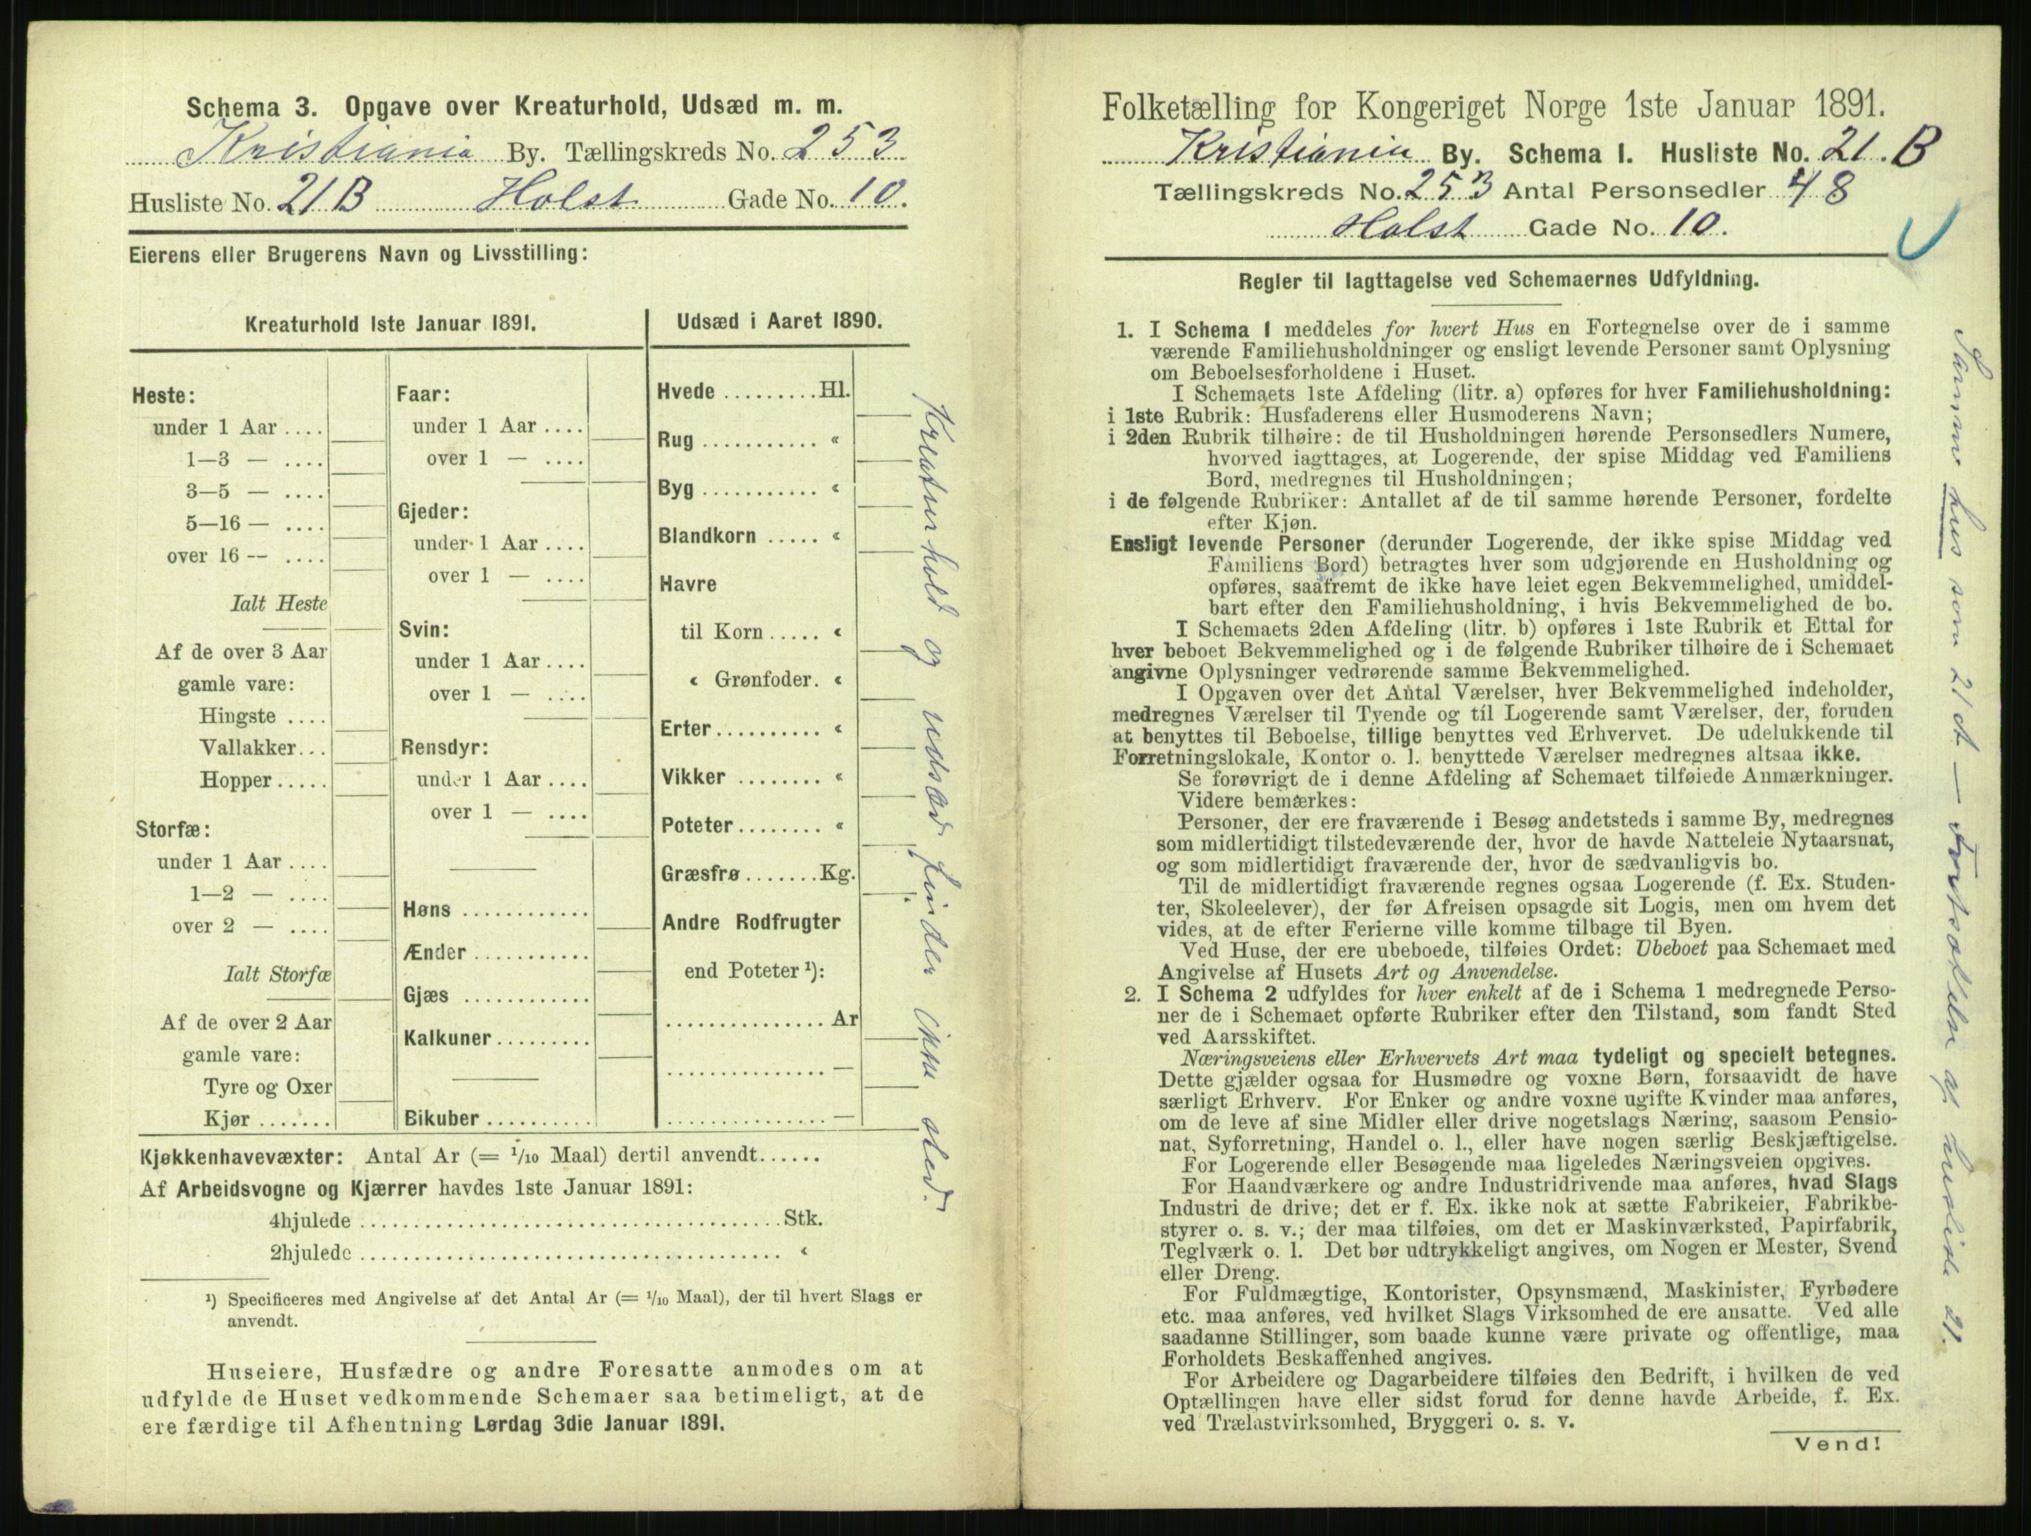 Schema 3. Opgave over Kreaturhold, Udsæd m. m.
Kristiania By. Tællingskreds No. 253
Husliste No. 21B Holst Gade No. 10.
Eierens eller Brugerens Navn og Livsstilling:
Kreaturhold 1ste Januar 1891.
Heste:
under 1 Aar ....
1—3 — ....
3—5 — ....
5—16 — ....
over 16 -- ....
Ialt Heste
Af de over 3 Aar
gamle vare:
Hingste ....
Vallakker...
Hopper .....
Storfæ:
under 1 Aar ....
1—2 — ....
over 2 — ....
Ialt Storfæ
Af de over 2 Aar
gamle vare:
Tyre og Oxer
Kjør .......
Faar:
under 1 Aar ....
over 1 — ....
Gjeder:
under 1 Aar ....
over 1 — ....
Svin:
under 1 Aar ....
over 1 — ....
Rensdyr:
under 1 Aar ....
over 1 — ....
Høns ............
Ænder ...........
Gjæs ............
Kalkuner.........
Bikuber ..........
Udsæd i Aaret 1890.
Hvede ......... Hl.
Rug ........... «
Byg ........... «
Blandkorn ..... «
Havre
til Korn ..... «
« Grønfoder. «
Erter.......... «
Vikker ........ «
Poteter........ «
Græsfrø ....... Kg.
Andre Rodfrugter
end Poteter ¹):
............... Ar
............... —
............... —
Kreaturhold og udsæd finder ikke sted.
Kjøkkenhavevæxter: Antal Ar (= 1/10 Maal) dertil anvendt......
Af Arbeidsvogne og Kjærrer havdes 1ste Januar 1891:
4hjulede ........................................ Stk.
2hjulede ........................................ «
¹) Specificeres med Angivelse af det Antal Ar (= 1/10 Maal), der til hvert Slags er
anvendt.
Huseiere, Husfædre og andre Foresatte anmodes om at
udfylde de Huset vedkommende Schemaer saa betimeligt, at de
ere færdige til Afhentning Lørdag 3die Januar 1891.
Folketælling for Kongeriget Norge 1ste Januar 1891.
Kristiania By. Schema I. Husliste No. 21.B
Tællingskreds No. 253 Antal Personsedler 48
Holst Gade No. 10.
Regler til Iagttagelse ved Schemaernes Udfyldning.
1. I Schema 1 meddeles for hvert Hus en Fortegnelse over de i samme
værende Familiehusholdninger og ensligt levende Personer samt Oplysning
om Beboelsesforholdene i Huset.
I Schemaets 1ste Afdeling (litr. a) opføres for hver Familiehusholdning:
i 1ste Rubrik: Husfaderens eller Husmoderens Navn;
i 2den Rubrik tilhøire: de til Husholdningen hørende Personsedlers Numere,
hvorved iagttages, at Logerende, der spise Middag ved Familiens
Bord, medregnes til Husholdningen;
i de følgende Rubriker: Antallet af de til samme hørende Personer, fordelte
efter Kjøn.
Ensligt levende Personer (derunder Logerende, der ikke spise Middag ved
Familiens Bord) betragtes hver som udgjørende en Husholdning og
opføres, saafremt de ikke have leiet egen Bekvemmelighed, umiddel-
bart efter den Familiehusholdning, i hvis Bekvemmelighed de bo.
I Schemaets 2den Afdeling (litr. b) opføres i 1ste Rubrik et Ettal for
hver beboet Bekvemmelighed og i de følgende Rubriker tilhøire de i Schemaet
angivne Oplysninger vedrørende samme Bekvemmelighed.
I Opgaven over det Antal Værelser, hver Bekvemmelighed indeholder,
medregnes Værelser til Tyende og til Logerende samt Værelser, der, foruden
at benyttes til Beboelse, tillige benyttes ved Erhvervet. De udelukkende til
Forretningslokale, Kontor o. l. benyttede Værelser medregnes altsaa ikke.
Se forøvrigt de i denne Afdeling af Schemaet tilføiede Anmærkninger.
Videre bemærkes:
Personer, der ere fraværende i Besøg andetsteds i samme By, medregnes
som midlertidigt tilstedeværende der, hvor de havde Natteleie Nytaarsnat,
og som midlertidigt fraværende der, hvor de sædvanligvis bo.
Til de midlertidigt fraværende regnes ogsaa Logerende (f. Ex. Studen-
ter, Skoleelever), der før Afreisen opsagde sit Logis, men om hvem det
vides, at de efter Ferierne ville komme tilbage til Byen.
Ved Huse, der ere ubeboede, tilføies Ordet: Ubeboet paa Schemaet med
Angivelse af Husets Art og Anvendelse.
2. I Schema 2 udfyldes for hver enkelt af de i Schema 1 medregnede Perso-
ner de i Schemaet opførte Rubriker efter den Tilstand, som fandt Sted
ved Aarsskiftet.
Næringsveiens eller Erhvervets Art maa tydeligt og specielt betegnes.
Dette gjælder ogsaa for Husmødre og voxne Børn, forsaavidt de have
særligt Erhverv. For Enker og andre voxne ugifte Kvinder maa anføres,
om de leve af sine Midler eller drive nogetslags Næring, saasom Pensio-
nat, Syforretning, Handel o. l., eller have nogen særlig Beskjæftigelse.
For Logerende eller Besøgende maa ligeledes Næringsveien opgives.
For Haandværkere og andre Industridrivende maa anføres, hvad Slags
Industri de drive; det er f. Ex. ikke nok at sætte Fabrikeier, Fabrikbe-
styrer o. s. v.; der maa tilføies, om det er Maskinværksted, Papirfabrik,
Teglværk o. l. Det bør udtrykkeligt angives, om Nogen er Mester, Svend
eller Dreng.
For Fuldmægtige, Kontorister, Opsynsmænd, Maskinister, Fyrbødere
etc. maa anføres, ved hvilket Slags Virksomhed de ere ansatte. Ved alle
saadanne Stillinger, som baade kunne være private og offentlige, maa
Forholdets Beskaffenhed angives.
For Arbeidere og Dagarbeidere tilføies den Bedrift, i hvilken de ved
Optællingen have eller sidst forud for denne havde Arbeide, f. Ex.
ved Trælastvirksomhed, Bryggeri o. s. v.
Vend!
Samme hus som 21A — Fortsættelse af husliste 21.